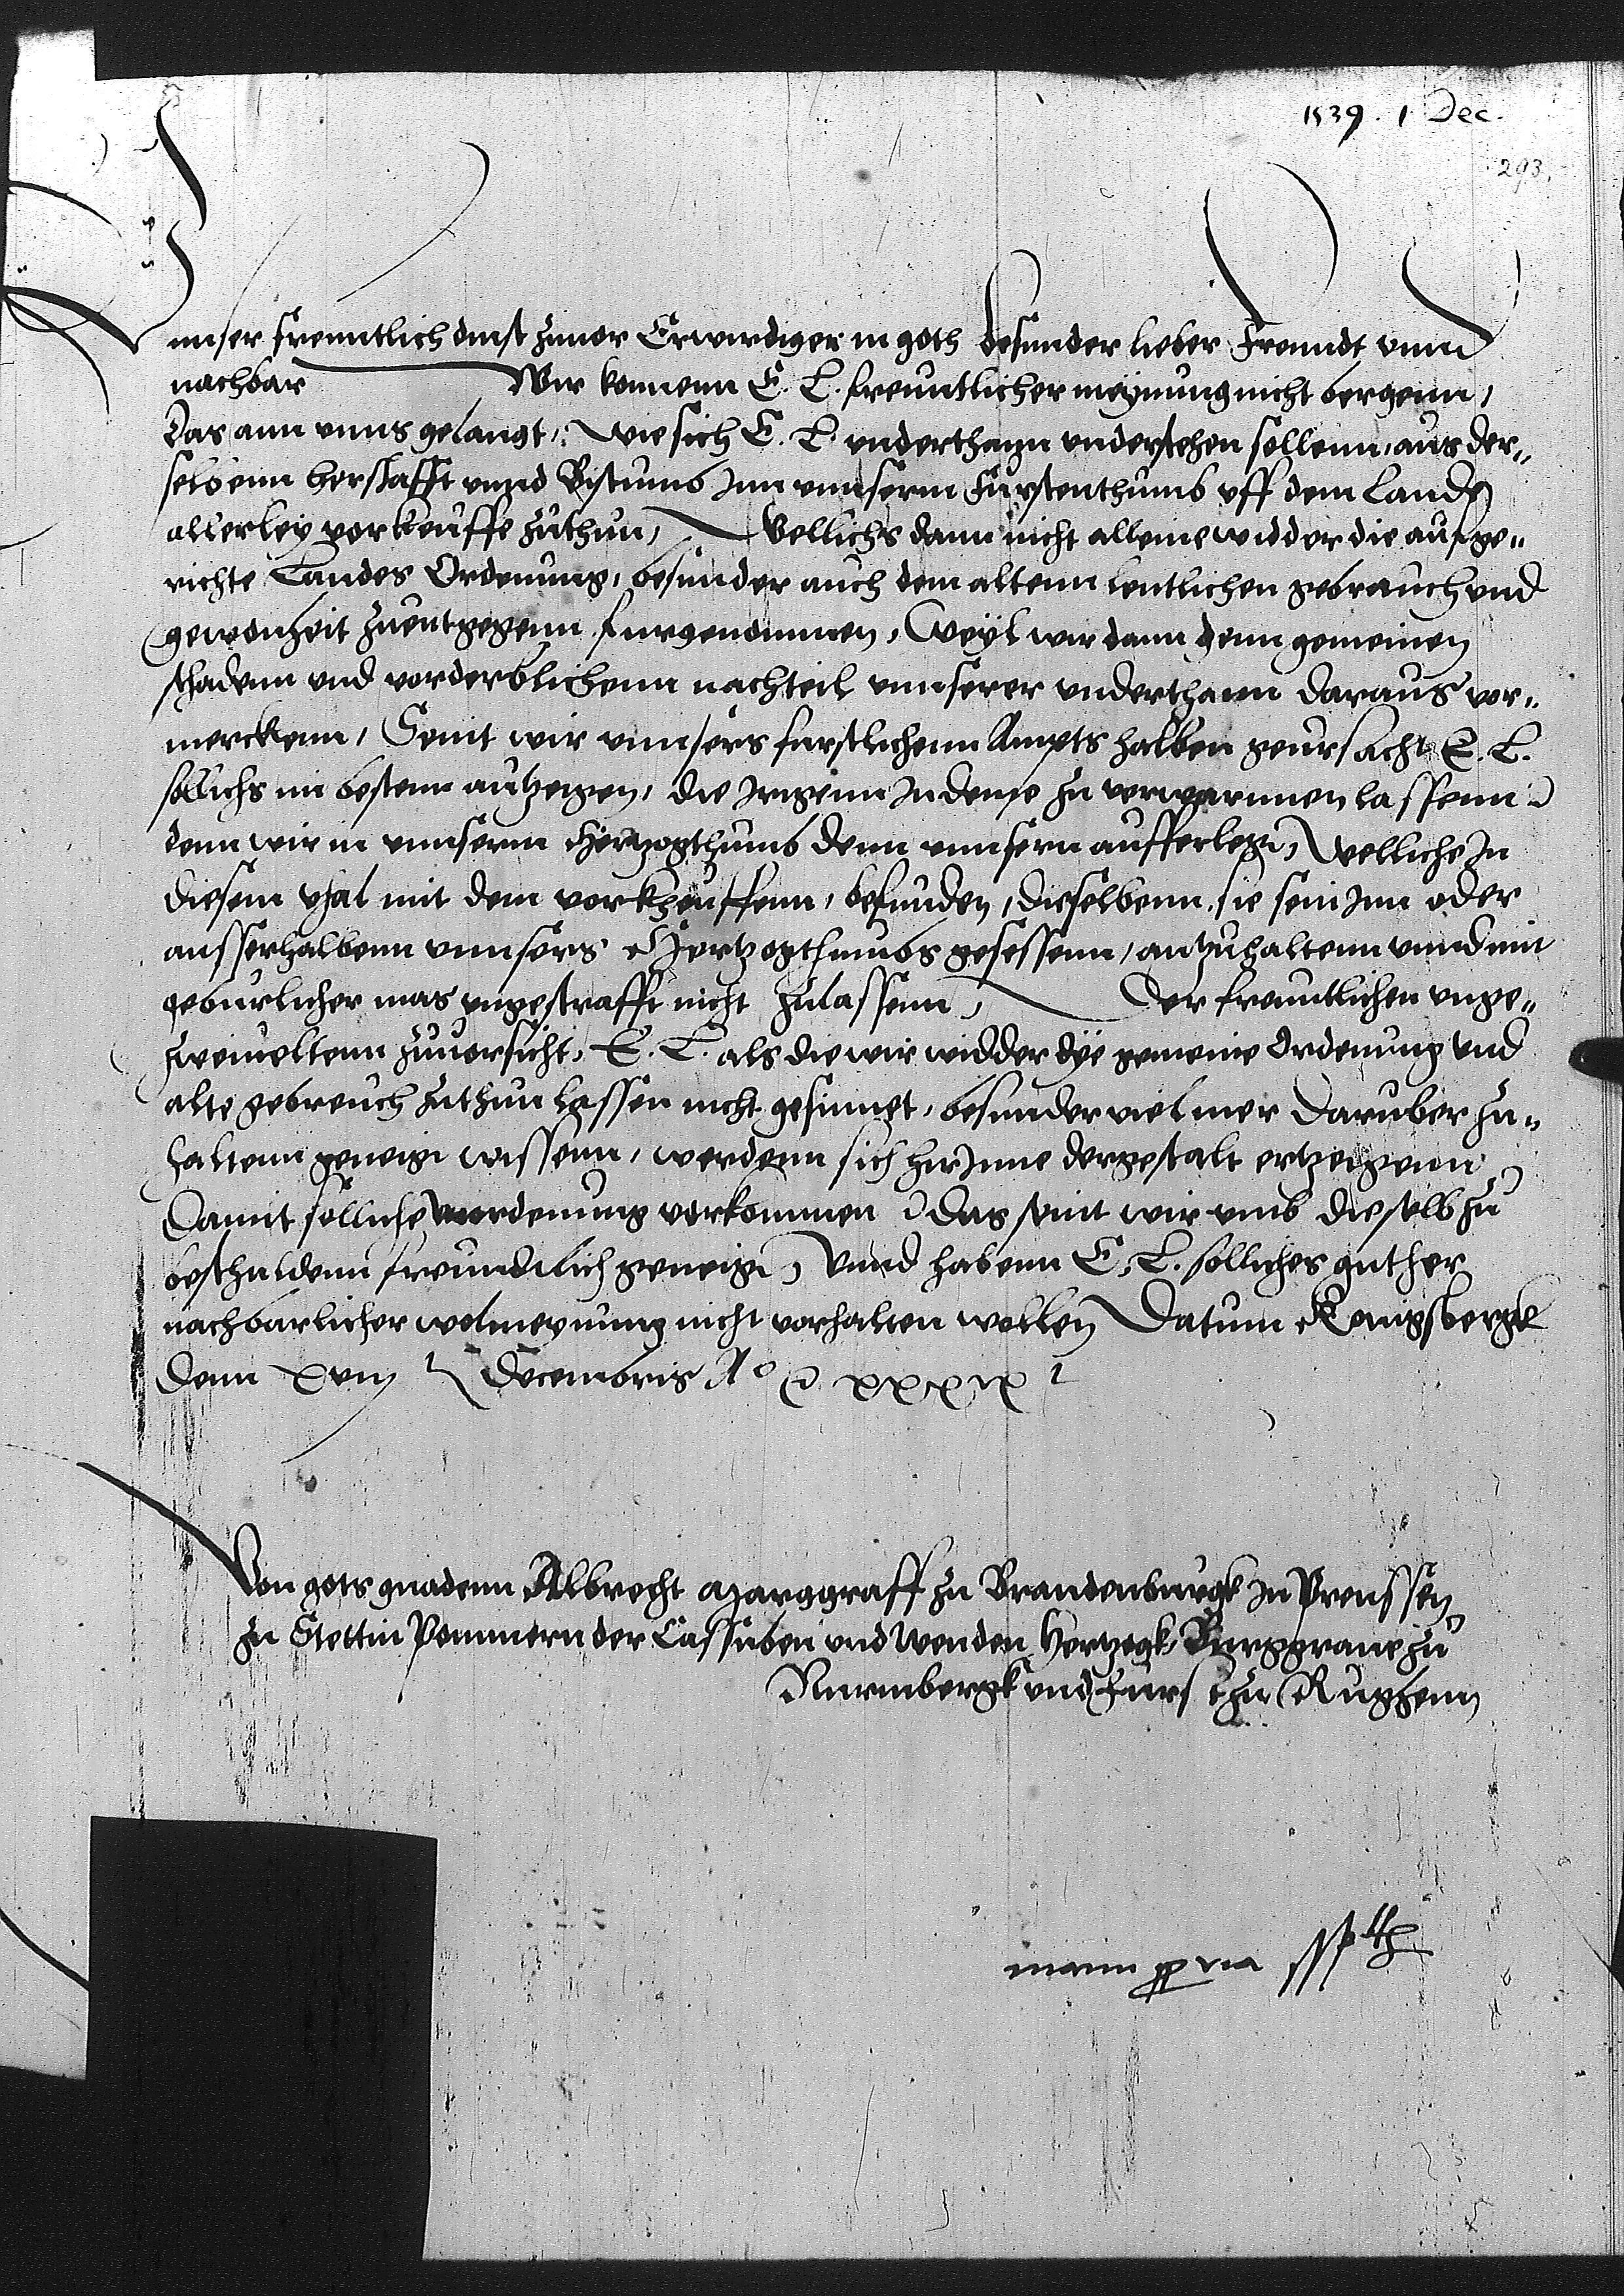 1539. 1 Dec.
293.
Vnnser freuntlich dinst zuuor Erwirdiger in goth besunder lieber Freundt vnnd
nachbar Wir konnenn E. L. freuntlicher meynung nicht bergenn,
Das ann vnns gelangt, wie sich E. L. vnderthann vnderstehen sollenn, aus der„
selbenn herschafft vnnd Bistumb Inn vnnserm Furstenthumb vff dem Lande
allerley vorkeuffe zuthun, Wellichs dann nicht alleine widder die aufge„
richte Landes Ordenung, besunder auch dem altenn lentlichen gebrauch vnd
gewonheit zuentgegenn furgenommen, Weyl wir dann denn gemeinen
schadenn vnd vorderblichenn nachteil vnnserer vnderthann daraus vor„
merckenn, Seint wir vnnsers furstlichenn Ampts halben geursacht E. L.
sollichs im bestenn antzeigen, die Irigenn Indeme zu verwarnnen lassenn
denn wir in vnnserm Hertzogthumb denn vnnsern aufferlegt, welliche In
diesem vhal mit dem vorkheuffenn, befunden, dieselbenn, sie sein Inn oder
ausserhalbenn vnnsers Hertzogthumbs gesessenn, antzuhaltenn vnnd mit
geburlicher mas vngestrafft nicht zulassenn, Der freuntlichen vnge„
zweiueltenn zuuorsicht, E. L. als die wir widder dye gemeine Ordenung vnd
alte gebreuch zuthun lassen nicht gesinnet, besunder viel mer daruber zu„
haltenn geneigt wissenn, werdenn sich hirInne dergestalt ertzeigenn
Damit solliche vnordenung vorkommen Das seint wir vmb dieselb zu
beschuldenn freundtlich geneigt, Vnnd habenn E. L. solliches guther
nachbarlicher wolmeynung nicht vorhalten wollen Datum Konigsbergk
denn Decembris Aº xxxix
Von gots gnadenn Albrecht Marggraff zu Brandenburgk In Preussen
zu Stettin Pommern der Cassuben vnd Wenden Hertzogk, Burggraue zu
Nurmbergk vnd Furst zu Rughenn
manu ppria sspt